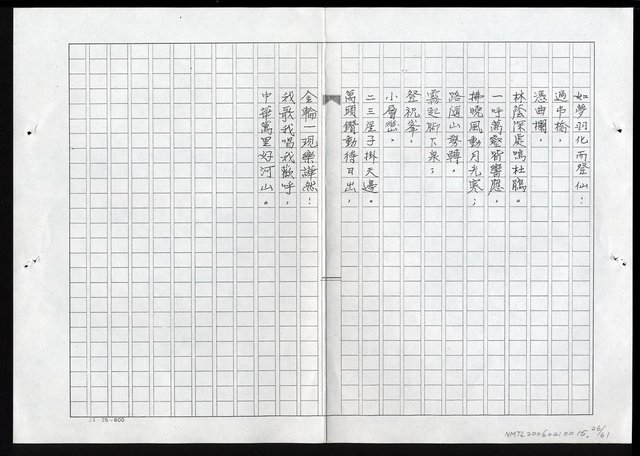 如夢羽化而登仙！
過弔橋，
憑曲欄，
林蔭深處鳴杜鵑。
一呼萬壑皆響應，
拂曉風動月光寒；
路隨山勢轉，
霧起腳下泉；
登祝峯，
小層巒，
二三星子掛天邊。
萬頭鑽動待日出，
金輪一現樂譁然！
我歌我唱我歡呼，
中華萬里好河山。
24 25=600
NMTL20050210015 26/61